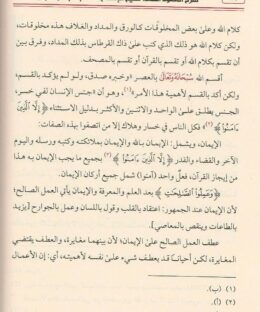 كلام الله وعلى بعض المخلوقات كالورق والمداد والغلاف هذه مخلوقات،
ولكن كلام الله هو ذلك الذي كتب على ذلك القرطاس بذلك المداد، وفرق بين
أن تقسم بكلام الله بالقرآن أو تقسم بالمصحف.
أقسم الله سُبْحَانَهُوَتَعَالَى بالعصر وخبره صدق، ولو لم يؤكد بالقسم،
ولكن أكد بالقسم لأهمية هذا الأمر: وهو «جنس الإنسان لفي خسر،
الجنس يطلق على الواحد والاثنين والأكثر بدليل الاستثناء ﴿إِلَّا الَّذِينَ
ءَامَنُوا﴾(١)» فكل الناس في خسار وهلاك إلا من اتصفوا بهذه الصفات:
الإيمان، ويشمل: الإيمان بالله والإيمان بملائكته وكتبه ورسله واليوم
الآخر والقضاء والقدر ﴿إِلَّا الَّذِينَ ءَامَنُوا﴾(٢) بجميع ما يجب الإيمان به هذا
من إيجاز القرآن، فعل واحد (آمنوا) شمل جميع أركان الإيمان.
﴿وَعَمِلُوا الصَّالِحَاتِ﴾ بعد العلم والمعرفة والإيمان يأتي العمل الصالح؛
لأن الإيمان عند الجمهور: اعتقاد بالقلب وقول باللسان وعمل بالجوارح [يزيد
بالطاعات وينقص بالمعاصي].
عطف العمل الصالح على الإيمان؛ لأن بينهما مغايرة، والعطف يقتضي
المغايرة، لكن أحيانًا قد يعطف شيء على نفسه لأهميته، أي: إن الأعمال
(١) (ب).
(٢) (أ).